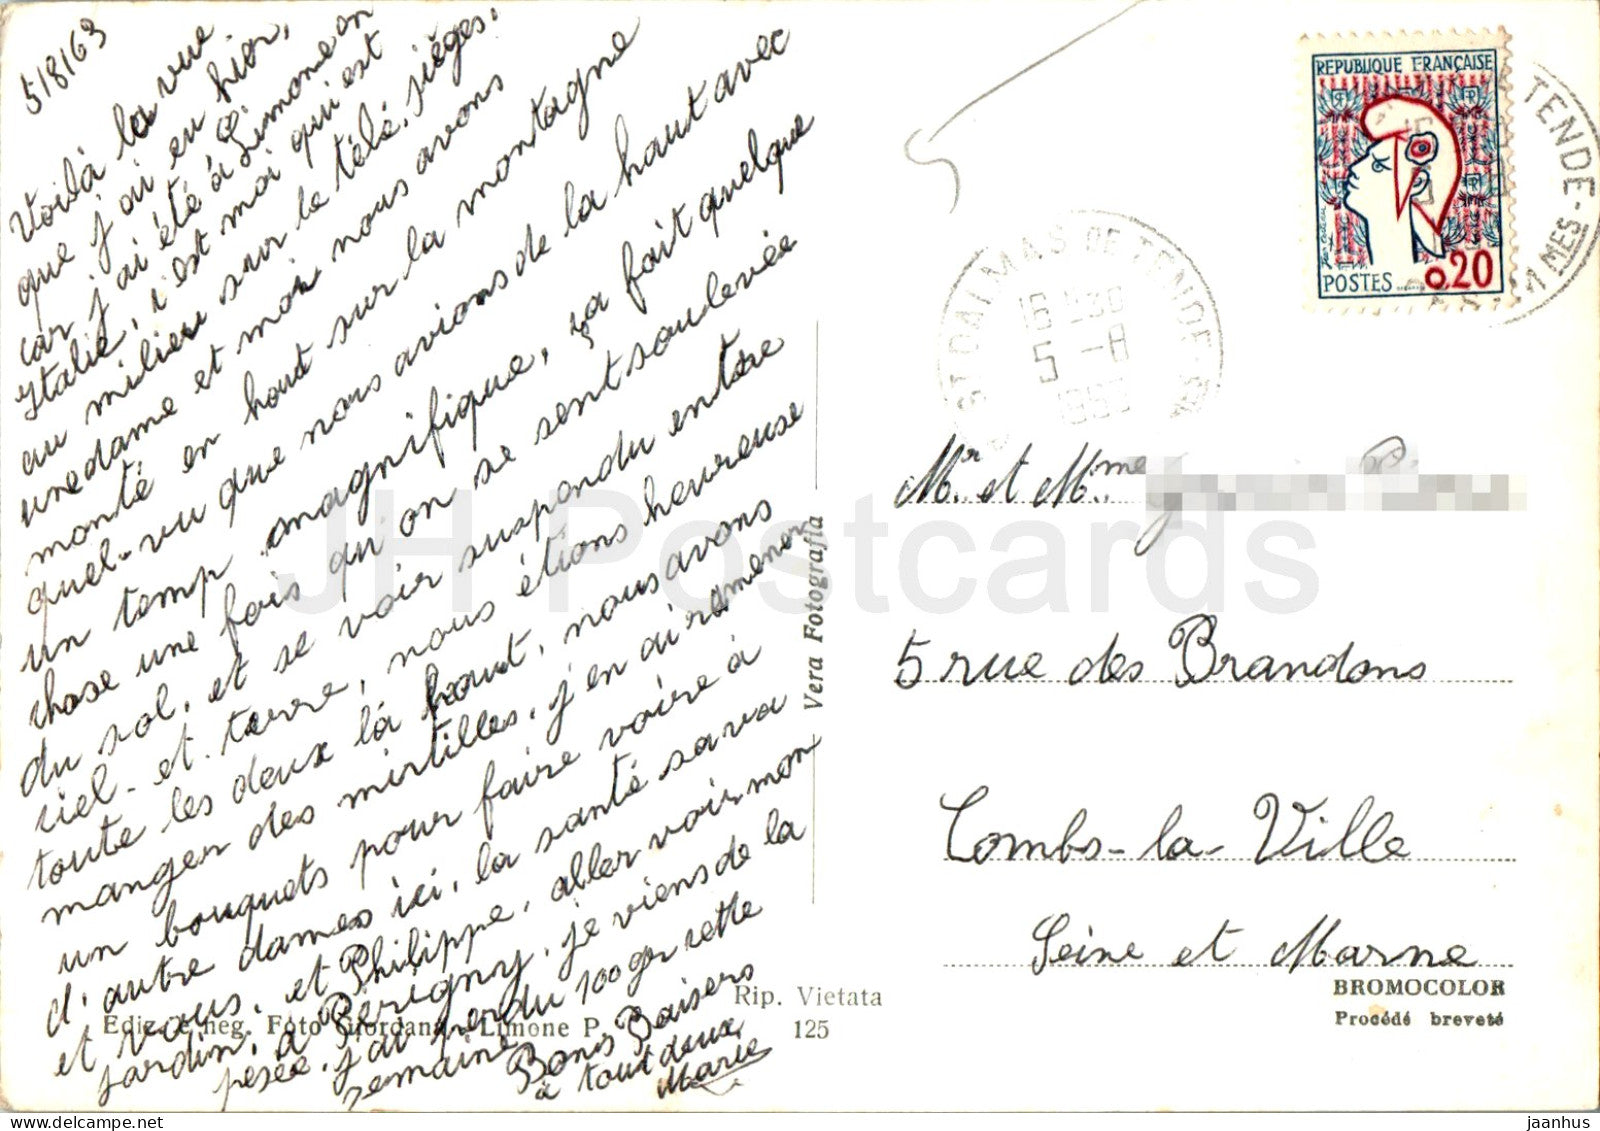 5/8/63
Voilà la vue
que j'ai eu hier,
car j'ai été à Limone en
Italie, c'est moi qui est
au milieu sur le télé-sièges.
une dame et moi nous avons
monté en haut sur la montagne
quel-vu que nous avions de la haut avec
un temp magnifique, ça fait quelque
chose une fois qu'on se sent soulevée
du sol, et se voir suspendu entre
ciel-et-terre, nous étions heureuse
toute les deux là haut, nous avons
manger des mirtilles, j'en ai ramener
un bouquets pour faire voire à
d'autre dames ici, la santé sa va
et vous, et Philippe, aller voir mon
jardin, à Périgny, je viens de la
pesée, j'ai perdu 100 gr cette
semaine
Bons Baisers
à tout deux,
Marie
Ediz. e neg. Foto Giordana - Limone P.
Rip. Vietata
125
Vera Fotografia
REPUBLIQUE FRANÇAISE
POSTES
0,20
TENDE
MES
ST DALMAS DE TENDE
16 H30
5 -8
Mr. et Mme.
5 rue des Brandons
Combs-la-Ville
Seine et Marne
BROMOCOLOR
Procédé breveté
JH Postcards
jaanhus
delcampe.net